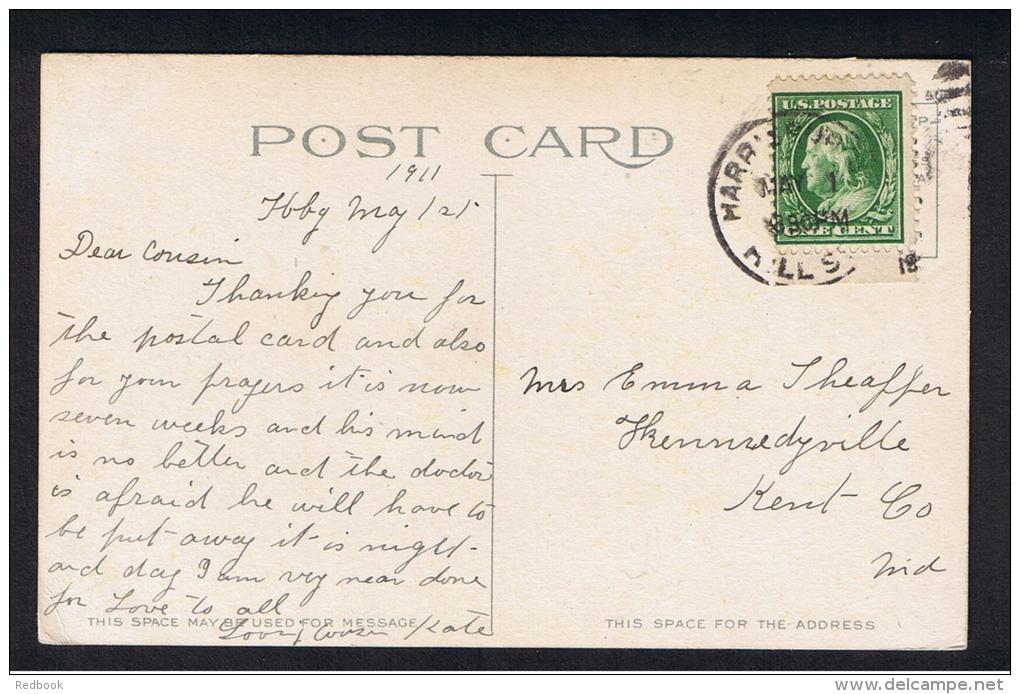 POST CARD
1911
Hbg May 1st
Dear Cousin
Thanking you for
the postal card and also
for your prayers it is now
seven weeks and his mind
is no better and the doctor
is afraid he will have to
be put away it is night
and day I am very near done
for Love to all
Loving Cousin Kate
THIS SPACE MAY BE USED FOR MESSAGE
U.S. POSTAGE
ONE CENT
MAY 1
830PM
HILL S
Mrs Emma Sheaffer
Kennedyville
Kent Co
Md
THIS SPACE FOR THE ADDRESS
Redbook
delcampe.net